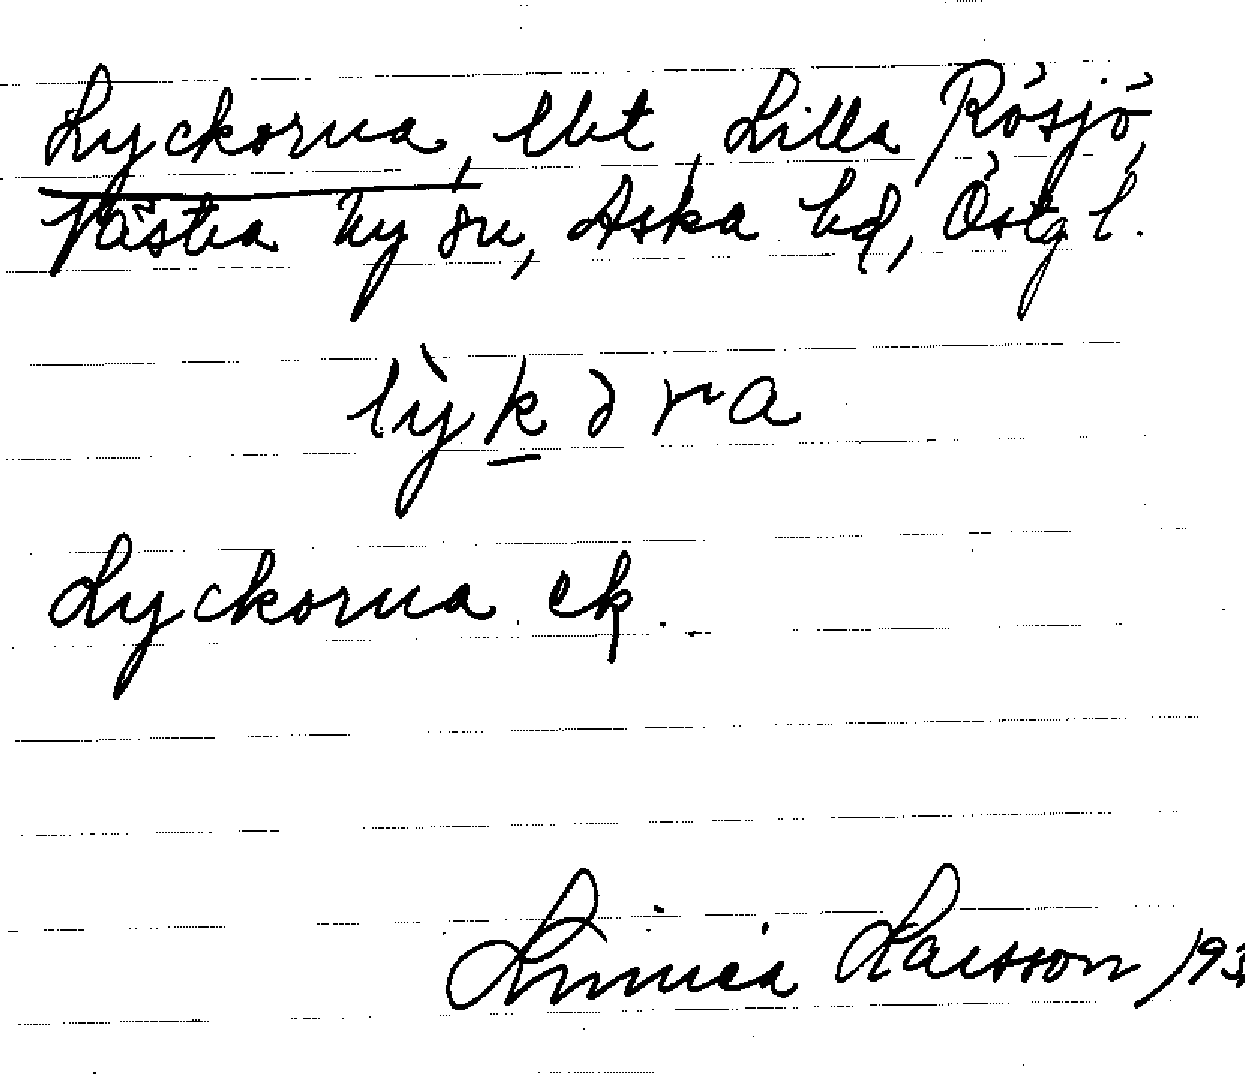 Lyckorna, lht, Lilla Rösjö,
Västra Ny sn, Aska hd, Östg l.
lỳkəra
Lyckorna ek.
Linnea Larsson 193